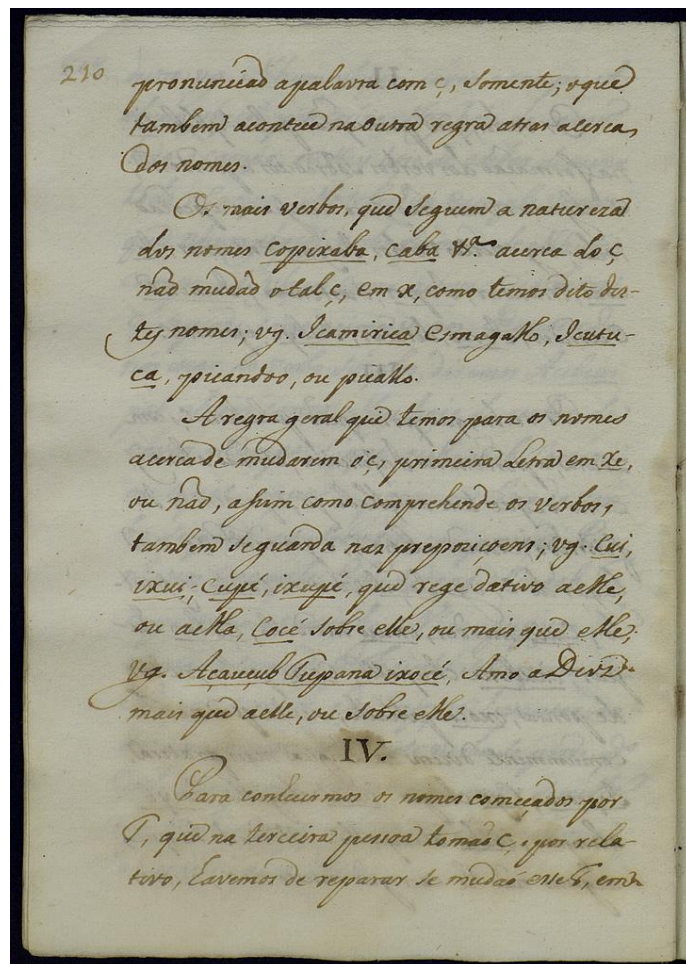 210
pronunciaõ a palavra com ç, somente; o que
tambem acontece na outra regra atras acerca
dos nomes.
Os mais verbos, que seguem a natureza
dos nomes copixaba, caba &ª. acerca do ç
naõ mudaõ o tal ç, em x, como temos dito des-
tes nomes; vg. Icamirica esmagallo, Icutu-
ca, picandoo, ou picallo.
A regra geral que temos para os nomes
acerca de mudarem o ç, primeira letra em xe,
ou naõ, assim como comprehende os verbos,
tambem se guarda nas preposiçoens; vg. Cui,
ixui; Cupé, ixupé, que rege dativo aelle,
ou aella, Cocé sobre elle, ou mais que elle;
vg. Açauçub Tupana ixocé, Amo a Deos
mais que aelle, ou sobre elle.
IV.
Para concluirmos os nomes começados por
T, que na terceira pessoa tomaõ ç, por rela-
tivo, havemos de reparar se mudaõ esse T, em